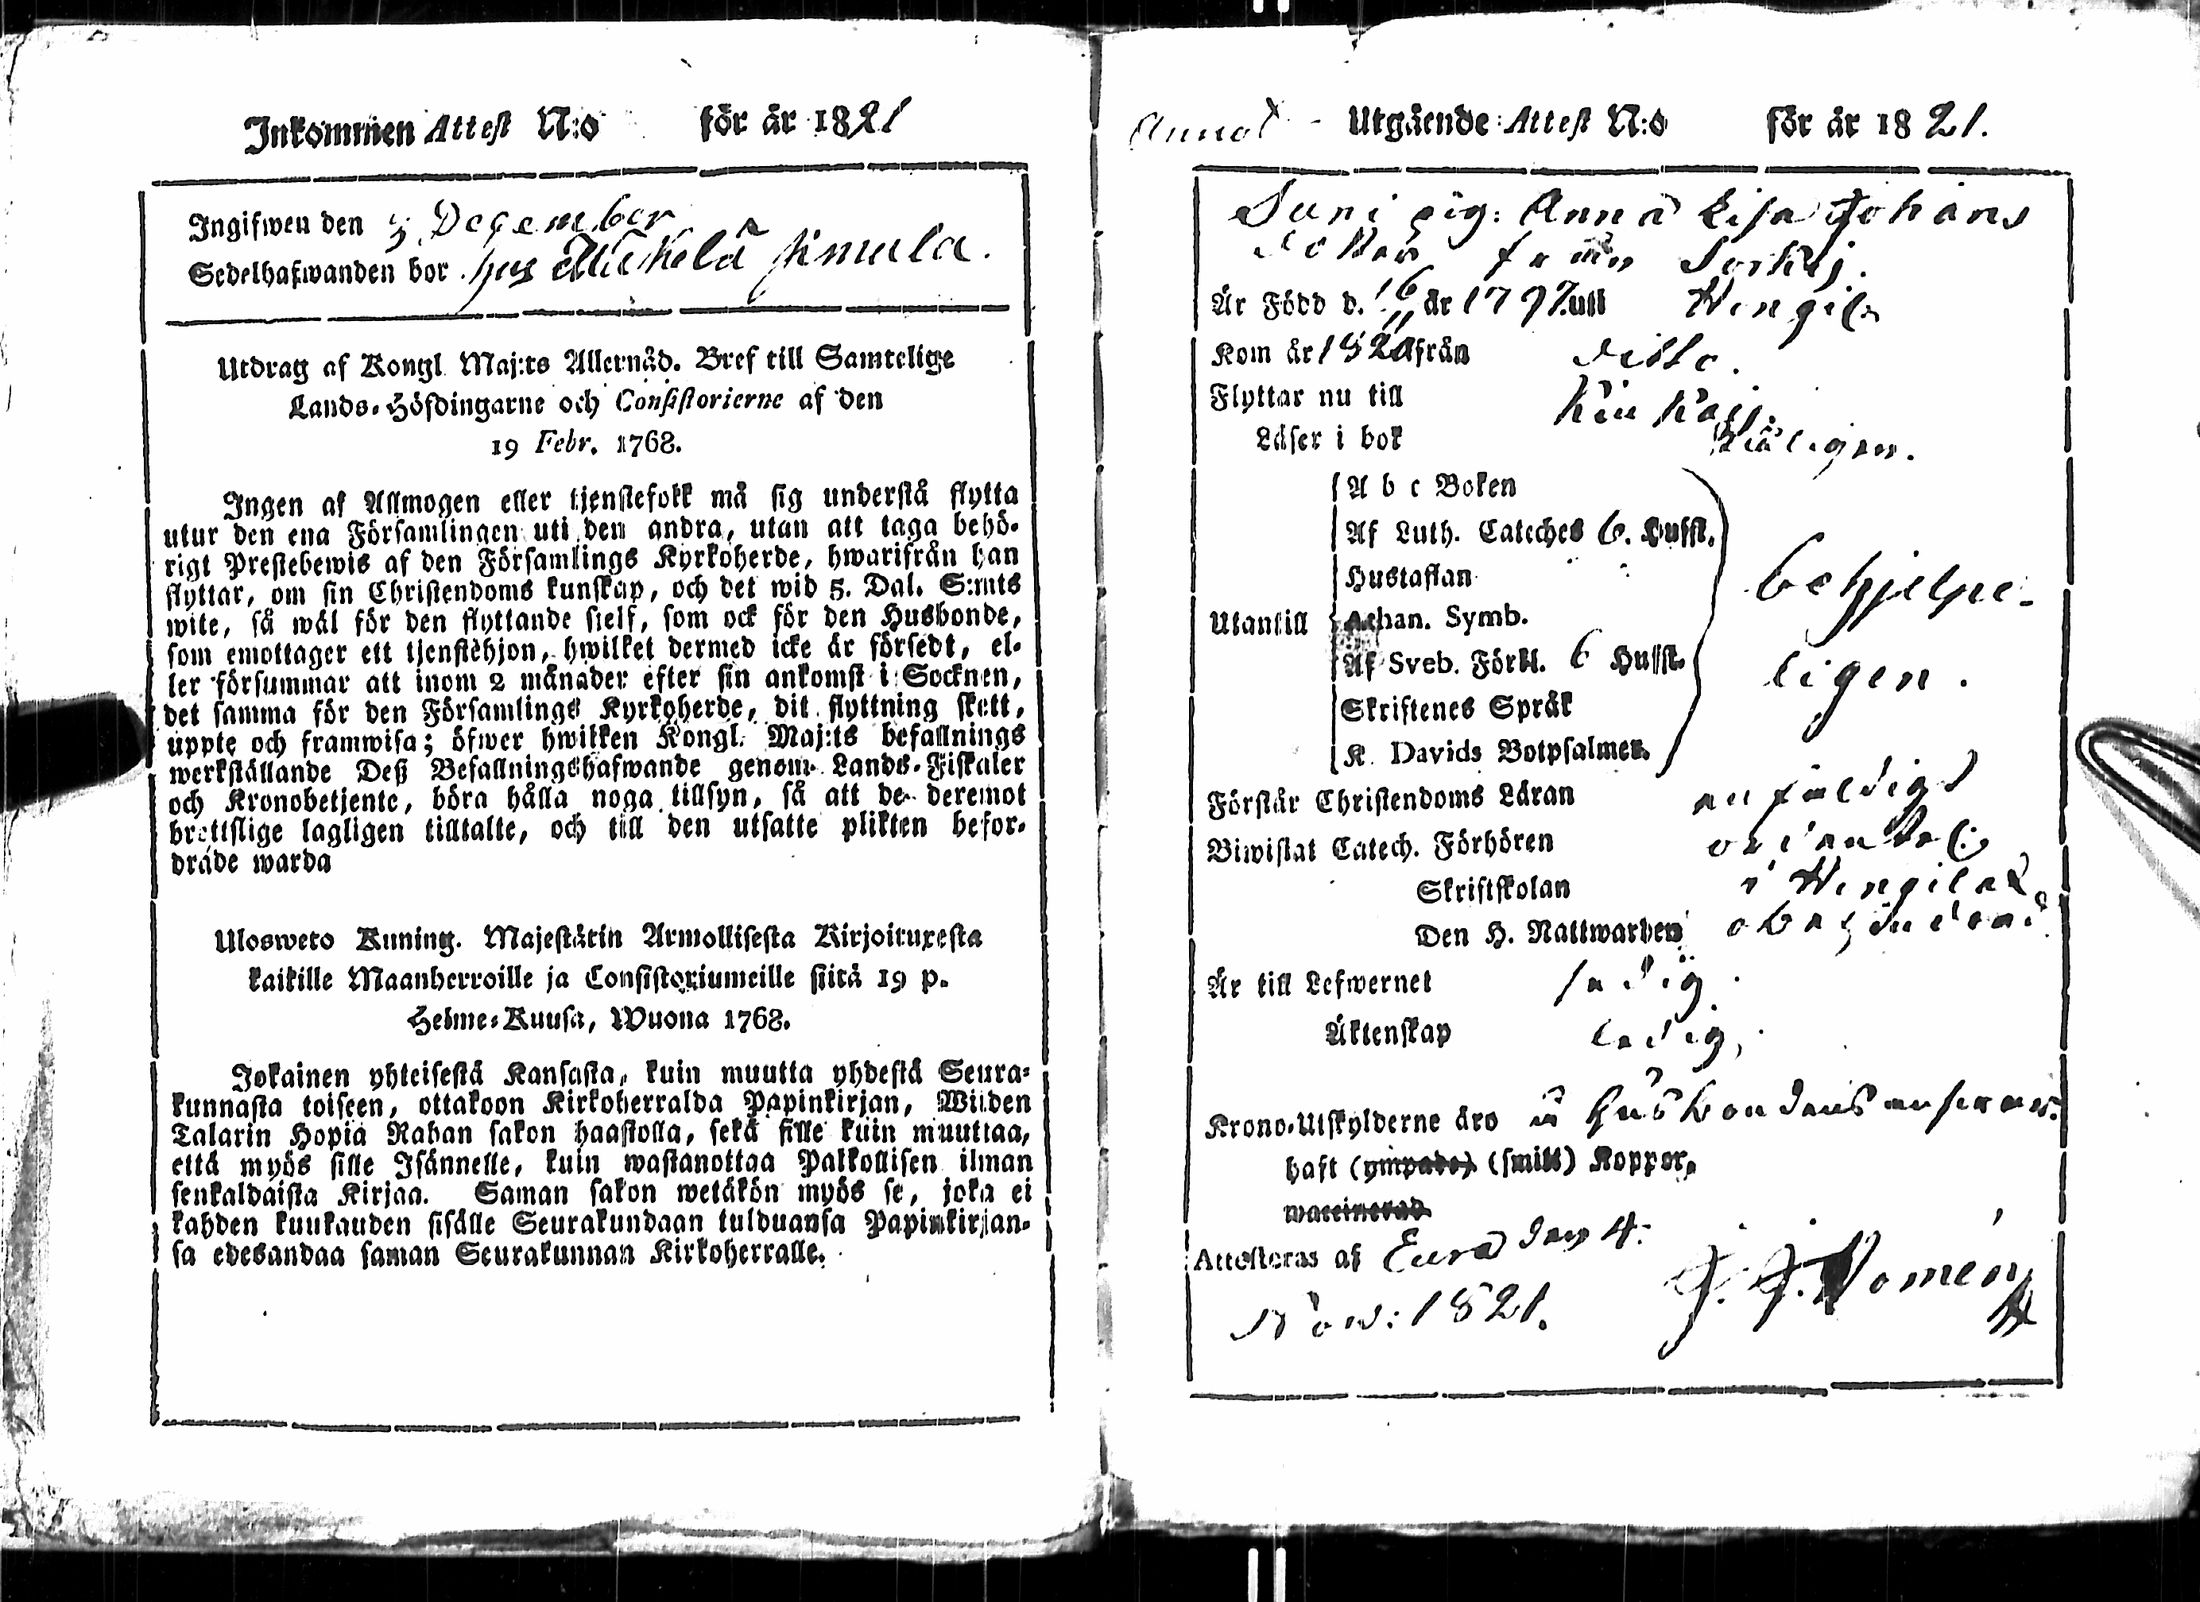 Inkommen Attest N:o för år 1821
Ingifwen den 3 December
Sedelhafwanden bor hos Mickelä Simula.
Utdrag af Kongl. Maj:ts Allernåd. Bref till Samtelige
Lands-Höfdingarne och Consistorierne af den
19 Febr. 1768.
Ingen af Allmogen eller tjenstefolk må sig understå flytta
utur den ena Församlingen uti den andra, utan att taga behö-
rigt Prestebewis af den Församlings Kyrkoherde, hwarifrån han
flyttar, om sin Christendoms kunskap, och det wid 5. Dal. S:mts
wite, så wäl för den flyttande sielf, som ock för den Husbonde,
som emottager ett tjenstehjon, hwilket dermed icke är försedt, el-
ler försummar att inom 2 månader efter sin ankomst i Socknen,
det samma för den Församlings Kyrkoherde, dit flyttning skett,
uppte och framwisa; öfwer hwilken Kongl. Maj:ts befallnings
werkställande Deß Befallningshafwande genom Lands-Fiskaler
och Kronobetjente, böra hålla noga tillsyn, så att de deremot
brottslige lagligen tilltalte, och till den utsatte plikten befor-
dråde warda
Ulosweto Kuning. Majestätin Armollisesta Kirjoituxesta
kaikille Maanherroille ja Consistoriumeille siitä 19 p.
Helme-Kuusa, Wuona 1768.
Jokainen yhteisestä Kansasta, kuin muutta yhdestä Seura-
kunnasta toiseen, ottakoon Kirkoherralda Papinkirjan, Wiiden
Talarin Hopia Rahan sakon haastolla, sekä sille kuin muuttaa,
että myös sille Isännelle, kuin wastanottaa Palkollisen ilman
senkaldaista Kirjaa. Saman sakon wetäkön myös se, joka ei
kahden kuukauden sisälle Seurakundaan tulduansa Papinkirjan-
sa edesandaa saman Seurakunnan Kirkoherralle.
Annot Utgående Attest N:o för år 1821.
pig: Anna Lisa Johans
dotter från Sorkis.
Är Född d. 16 år 1797. uti Hengil:
Kom år 1820 från ditto.
Flyttar nu till Kiukais.
Läser i bok
A b c Boken
Af Luth. Cateches 6. Hufst.
Hustaflan behjelpe-
Utantill Athan. Symb.
Af Sveb. Förkl. 6 Hufst. ligen.
Skriftenes Språk
K. Davids Botpsalmer.
Förstår Christendoms Läran enfaldigt
Biwistat Catech. Förhören ordentel:
Skriftskolan i Hengilax
Den H. Nattwarden obehindrad
Är till Lefwernet ledig.
Äktenskap ledig.
Krono-Utskylderne äro å Husbondens answar.
haft (ympade) (smitt) Koppor,
waccinerad
Attesteras af Eura den 4.
Nov: 1821. J. J. Nomén